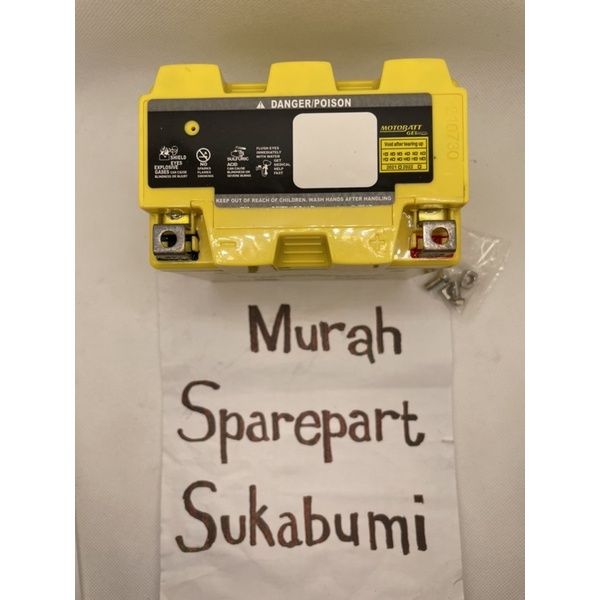 DANGER/POISON
MOTOBATT
GEL
Void after tearing up
2021 2022
SHIELD
EYES
EXPLOSIVE
GASES CAN CAUSE
BLINDNESS OR INJURY
NO
SPARKS
FLAMES
SMOKING
SULFURIC
ACID CAN CAUSE
BLINDNESS OR
SEVERE BURNS
FLUSH EYES
IMMEDIATELY
WITH WATER
GET
MEDICAL
HELP
FAST
KEEP OUT OF REACH OF CHILDREN. WASH HANDS AFTER HANDLING
Murah
Sparepart
Sukabumi